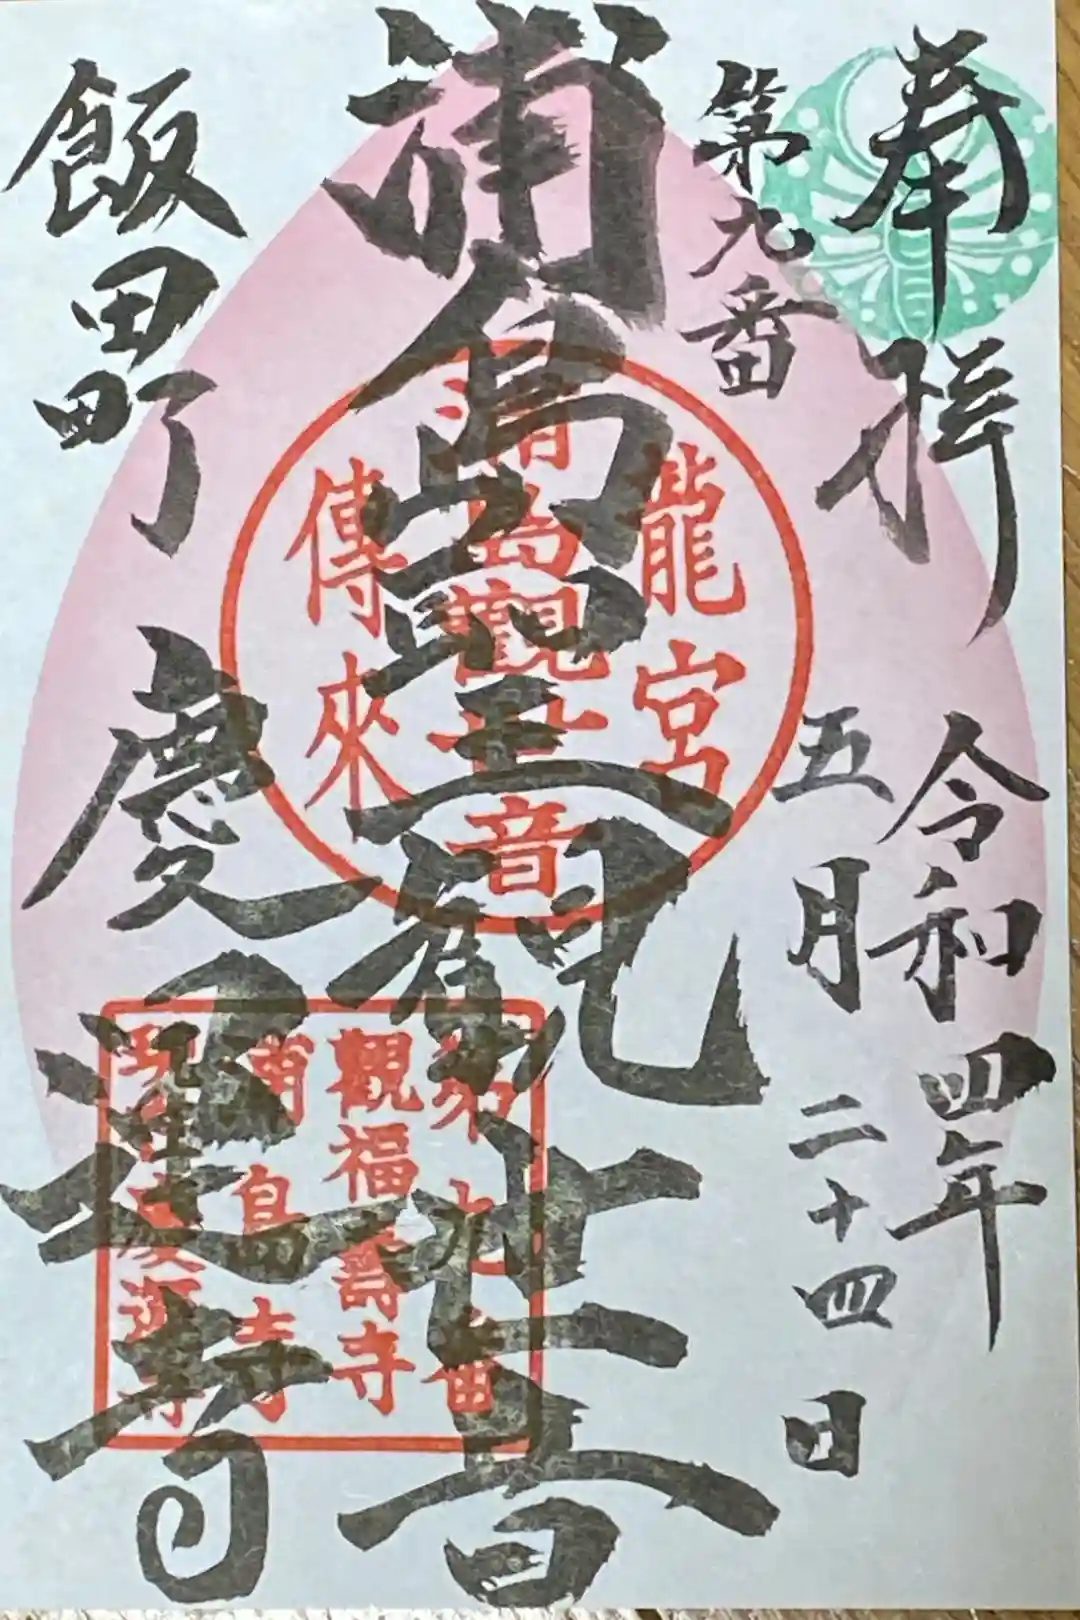 奉拝
令和四年
第九番
五月二十四日
浦島聖観世音
飯田町 慶運寺
龍宮
浦島觀世音
傳來
第九番
觀福壽寺
浦島寺